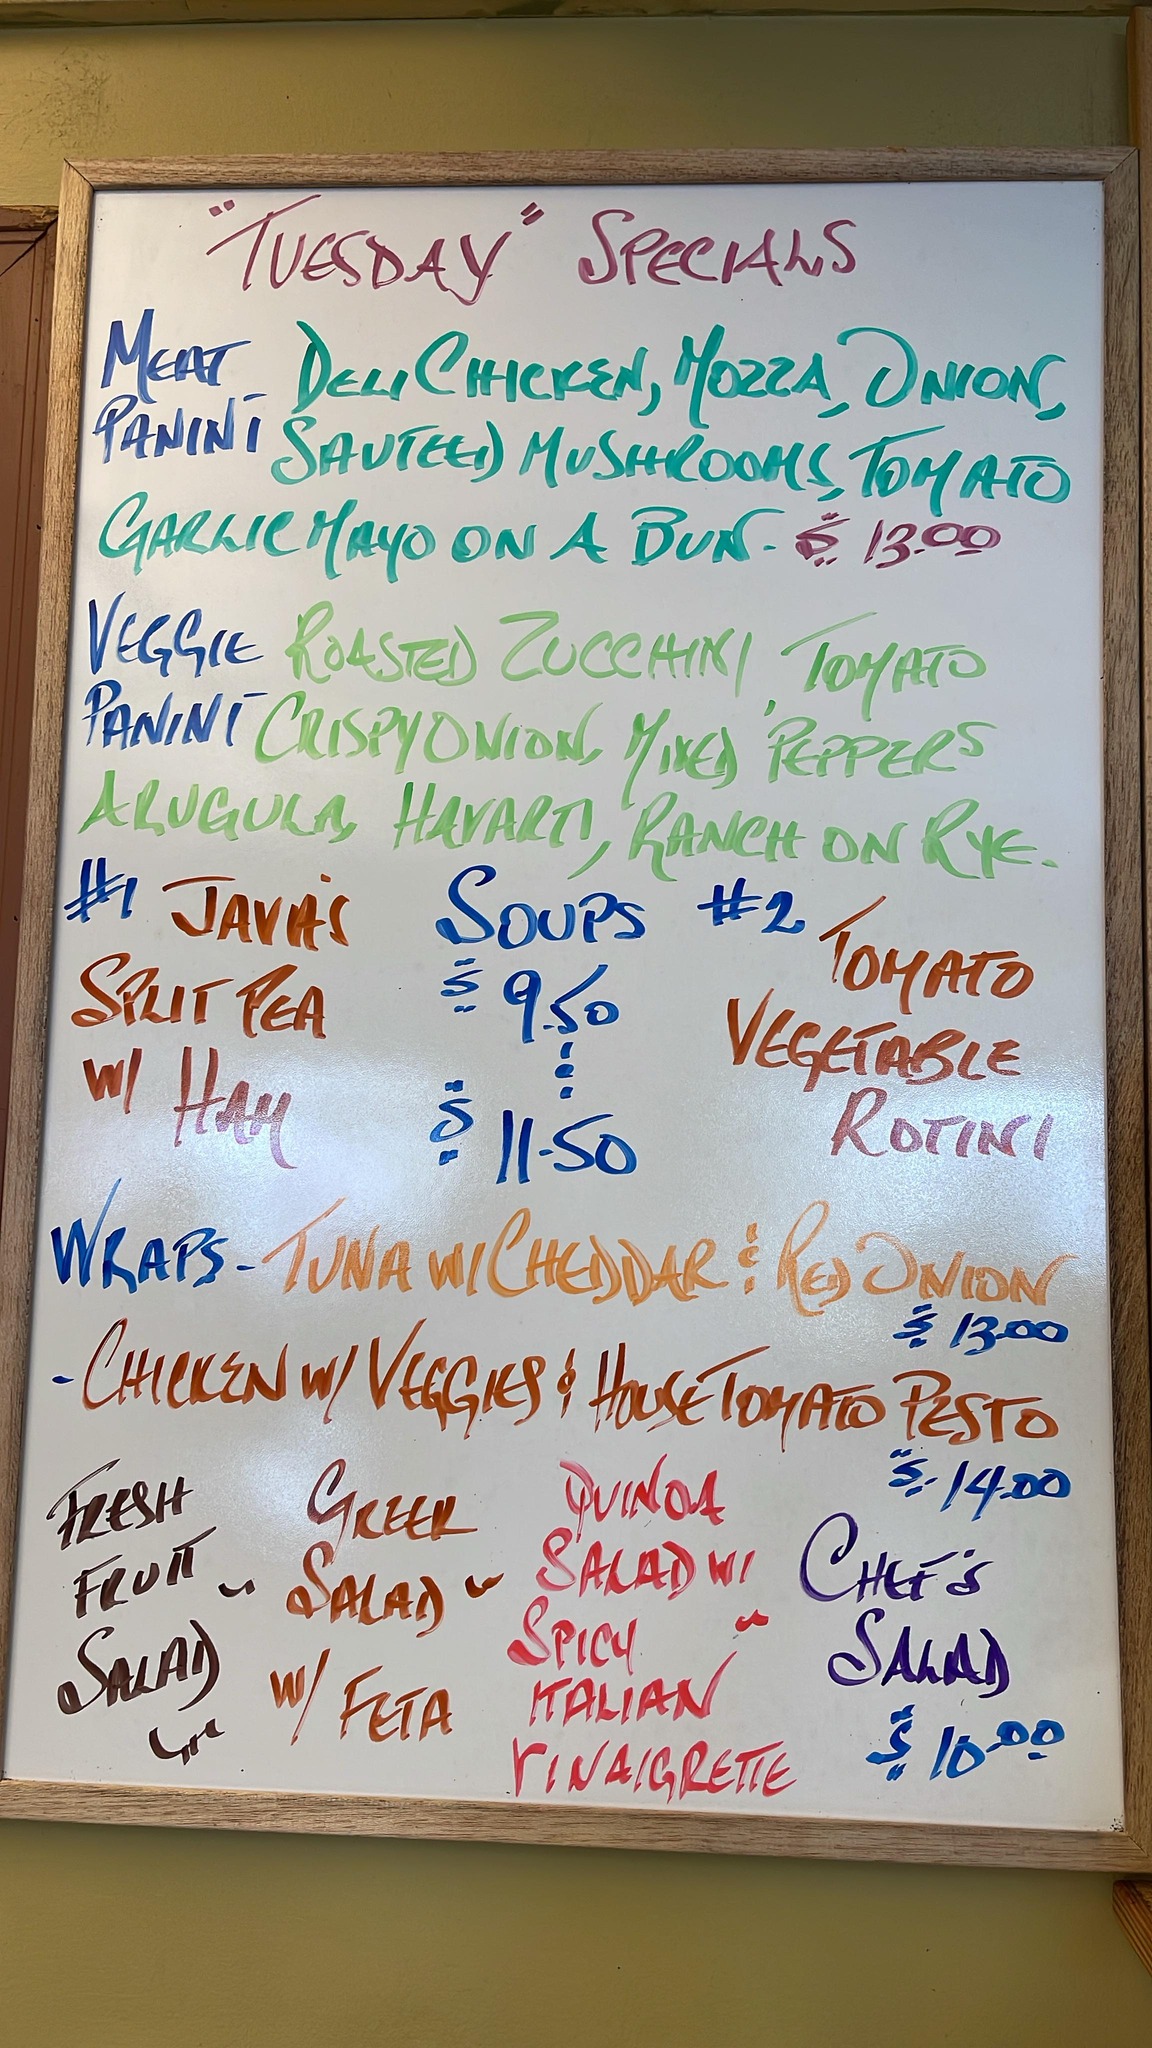 "TUESDAY" SPECIALS
MEAT PANINI DELI CHICKEN, MOZZA, ONION,
SAUTEED MUSHROOMS, TOMATO
GARLIC MAYO ON A BUN. $13.00
VEGGIE PANINI ROASTED ZUCCHINI, TOMATO
CRISPY ONION, MIXED PEPPERS
ARUGULA, HAVARTI, RANCH ON RYE.
#1 JAVA'S
SPLIT PEA
W/ HAM
SOUPS
$9.50
$11.50
#2 TOMATO
VEGETABLE
ROTINI
WRAPS - TUNA W/ CHEDDAR & RED ONION
$13.00
- CHICKEN W/ VEGGIES & HOUSE TOMATO PESTO
$14.00
FRESH
FRUIT
SALAD
GREEK
SALAD
W/ FETA
QUINOA
SALAD W/
SPICY
ITALIAN
VINAIGRETTE
CHEF'S
SALAD
$10.00